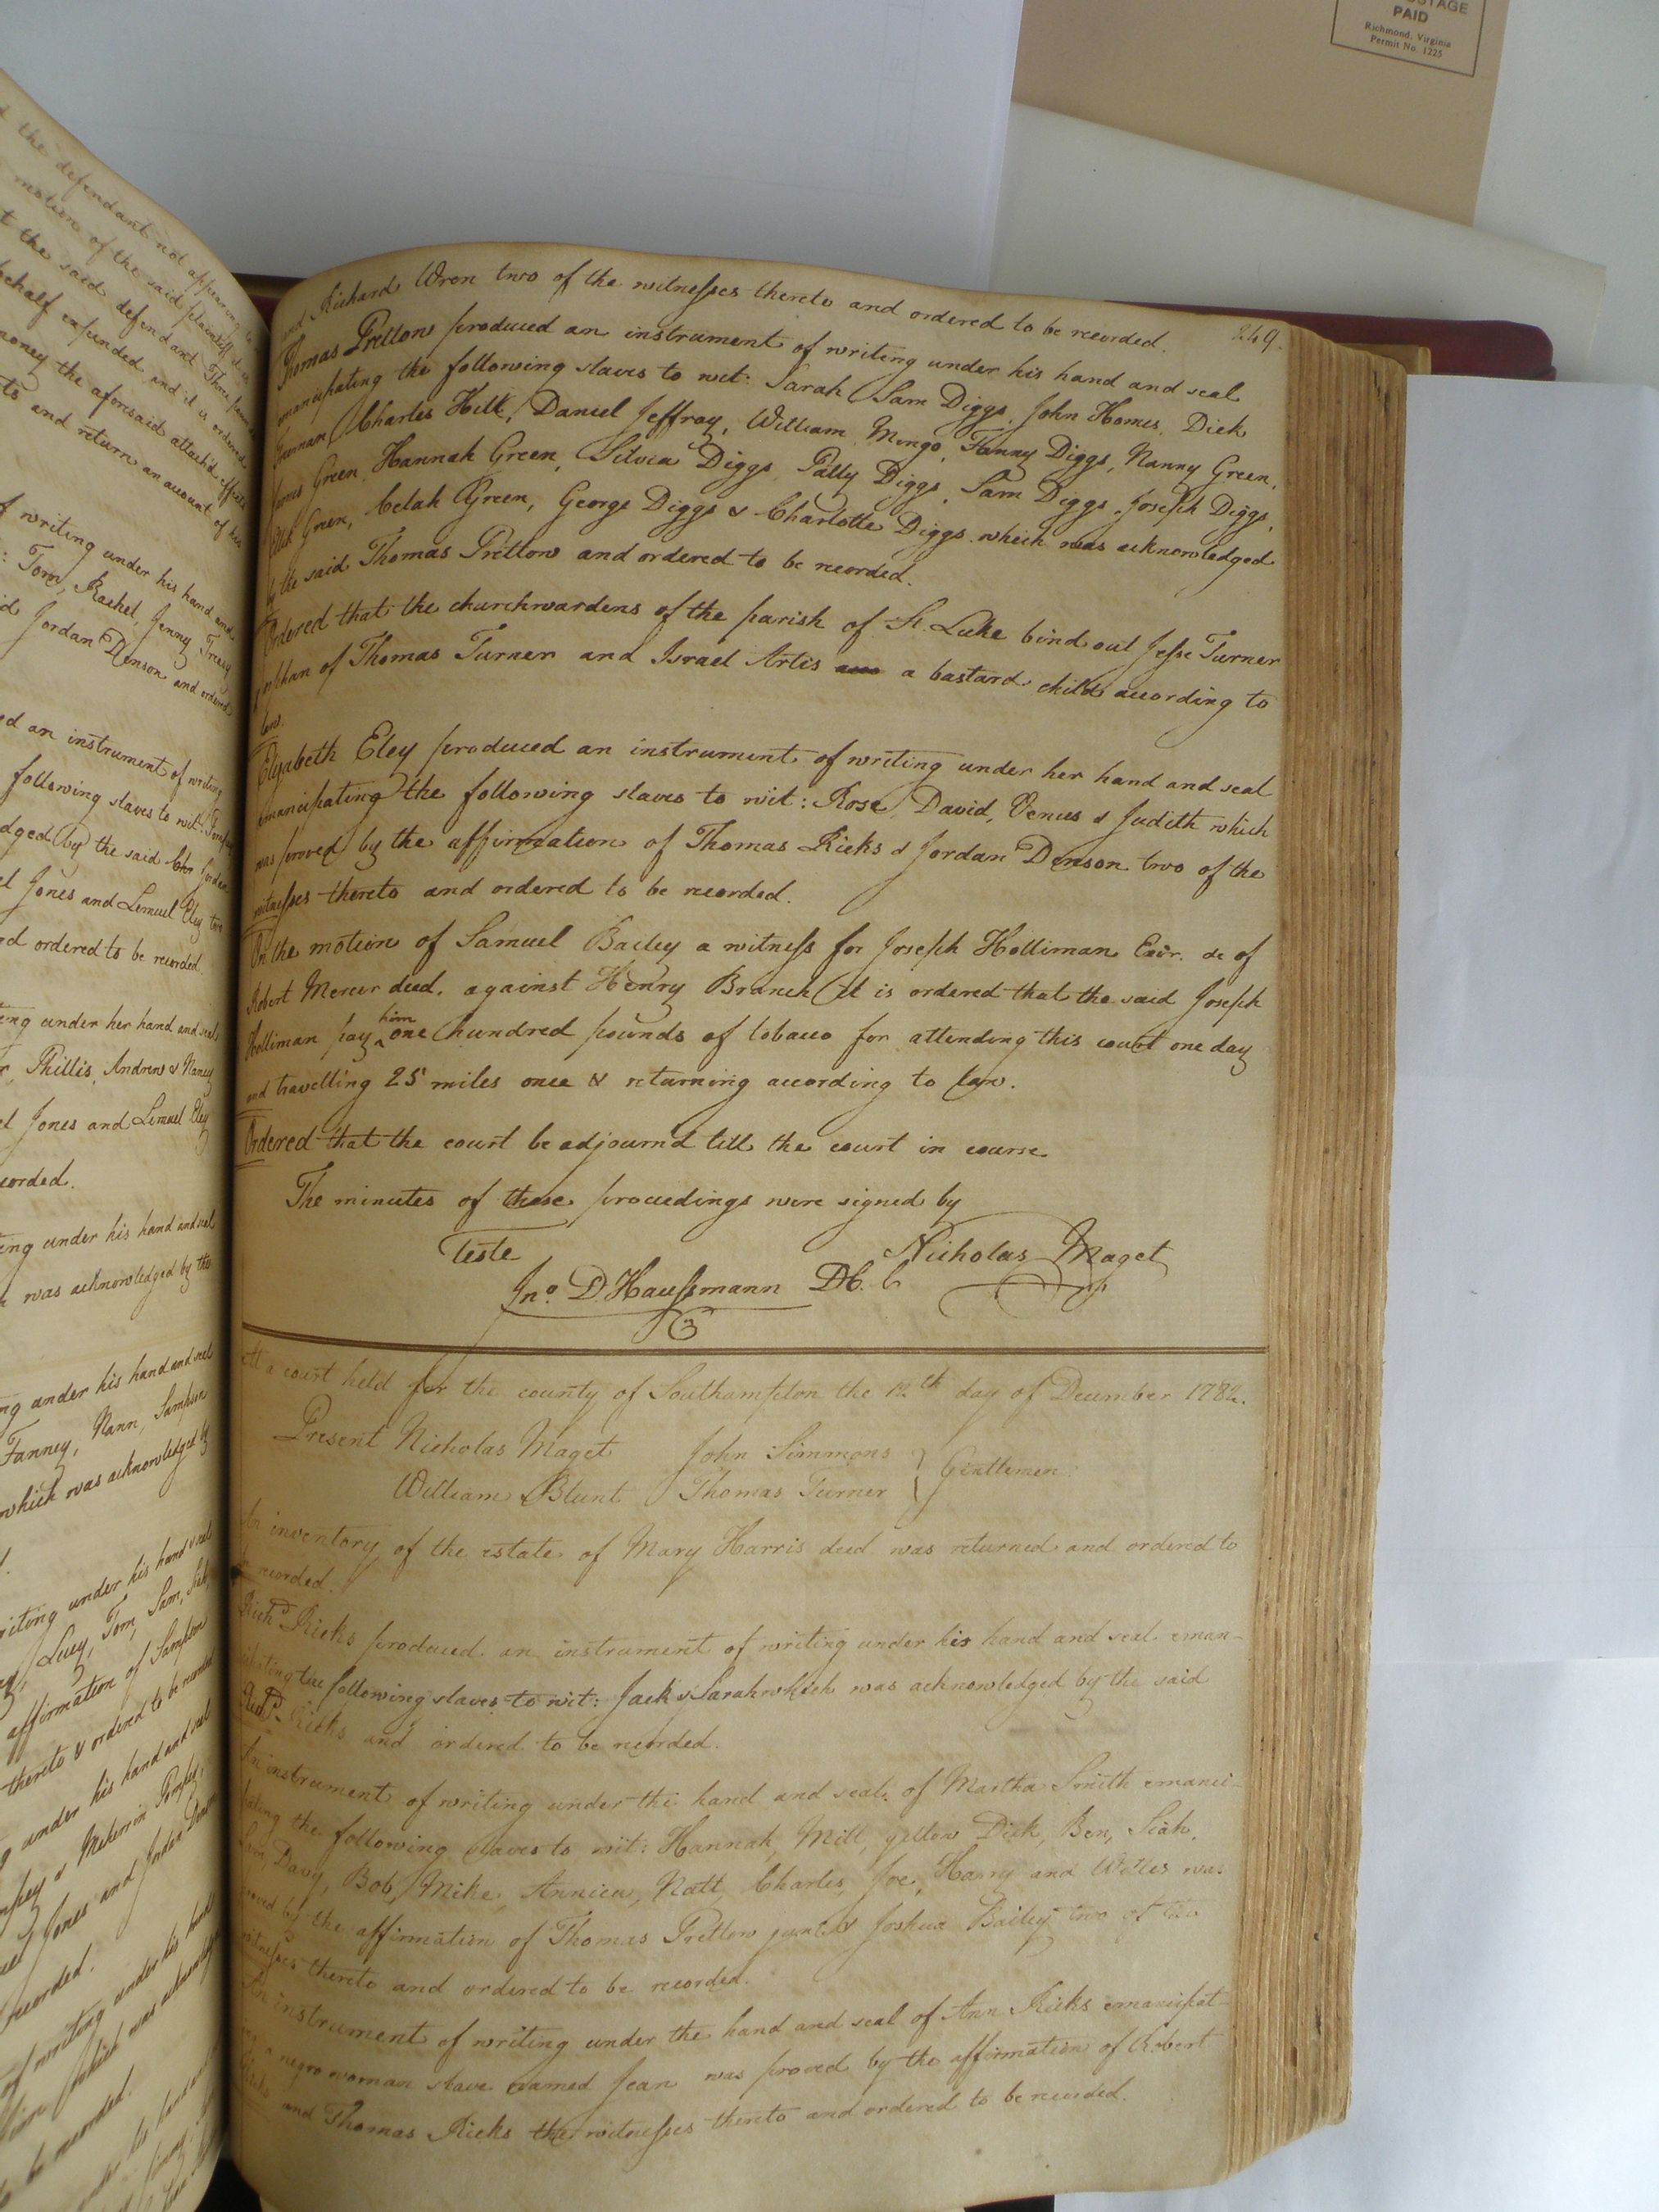 POSTAGE
PAID
Richmond, Virginia
Permit No. 1225
the defendant not appearing
motion of the said plaintiff it is
t the said defendant Three
behalf expended and it is ordered
money the aforesaid attach'd effects
ts and return an account of his
f writing under his hand and
: Tom, Rachel, Jenny, Treasy
id Jordan Denson and ordered
ed an instrument of writing
following slaves to wit:
dged by the said
el Jones and Lemuel Eley two
nd ordered to be recorded
ing under her hand and seal
Phillis, Andrew & Nancy
el Jones and Lemuel Eley
corded.
ing under his hand and seal
was acknowledged by the
ng under his hand and seal
Fanney, Nann, Sampson
which was acknowledged by
writing under his hand & seal
Lucy, Tom, Sam,
affirmation of Sampson
thereto & ordered to be recorded
under his hand and seal
Meherrin Pompey,
Jones and
recorded.
of writing under his hand
which was acknowledged
to be recorded.
249.
and Richard Wren two of the witnesses thereto and ordered to be recorded.
Thomas Pretlow produced an instrument of writing under his hand and seal
emancipating the following slaves to wit: Sarah, Sam Diggs, John Homes, Dick
Freeman, Charles Hill, Daniel Jeffray, William Mingo, Fanny Diggs, Nanny Green,
James Green, Hannah Green, Silvia Diggs, Patty Diggs, Sam Diggs, Joseph Diggs,
Green, Celah Green, George Diggs & Charlotte Diggs which was acknowledged
by the said Thomas Pretlow and ordered to be recorded.
Ordered that the churchwardens of the parish of St. Luke bind out Jesse Turner
orphan of Thomas Turner and Israel Artis a bastard child according to
law.
Elizabeth Eley produced an instrument of writing under her hand and seal
emancipating the following slaves to wit: Rose, David, Venus & Judith which
was proved by the affirmation of Thomas Ricks & Jordan Denson two of the
witnesses thereto and ordered to be recorded.
On the motion of Samuel Bailey a witness for Joseph Holliman Exor. &c of
Robert Mercer decd. against Henry Branch it is ordered that the said Joseph
Holliman pay him one hundred pounds of tobacco for attending this court one day
and travelling 25 miles once & returning according to law.
Ordered that the court be adjourn'd till the court in course
The minutes of these proceedings were signed by
Teste Nicholas Maget
Jno. D. Haussmann D.C.C
At a court held for the county of Southampton the 12th day of December 1782.
Present Nicholas Maget John Simmons
William Blunt Thomas Turner } Gentlemen
An inventory of the estate of Mary Harris decd was returned and ordered to
be recorded.
Richd Ricks produced an instrument of writing under his hand and seal eman-
cipating the following slaves to wit: Jack & Sarah which was acknowledged by the said
Richd Ricks and ordered to be recorded.
An instrument of writing under the hand and seal of Martha Smith emanci-
pating the following slaves to wit: Hannah, Mill, yellow Dick, Ben, Siah,
Sam, Davy, Bob, Mike, Annica, Natt, Charles, Joe, Harry and Willes was
proved by the affirmation of Thomas Pretlow junr. & Joshua Bailey two of the
witnesses thereto and ordered to be recorded.
An instrument of writing under the hand and seal of Ann Ricks emancipat-
ing a negro woman slave named Jean was proved by the affirmation of Robert
Ricks and Thomas Ricks the witnesses thereto and ordered to be recorded.